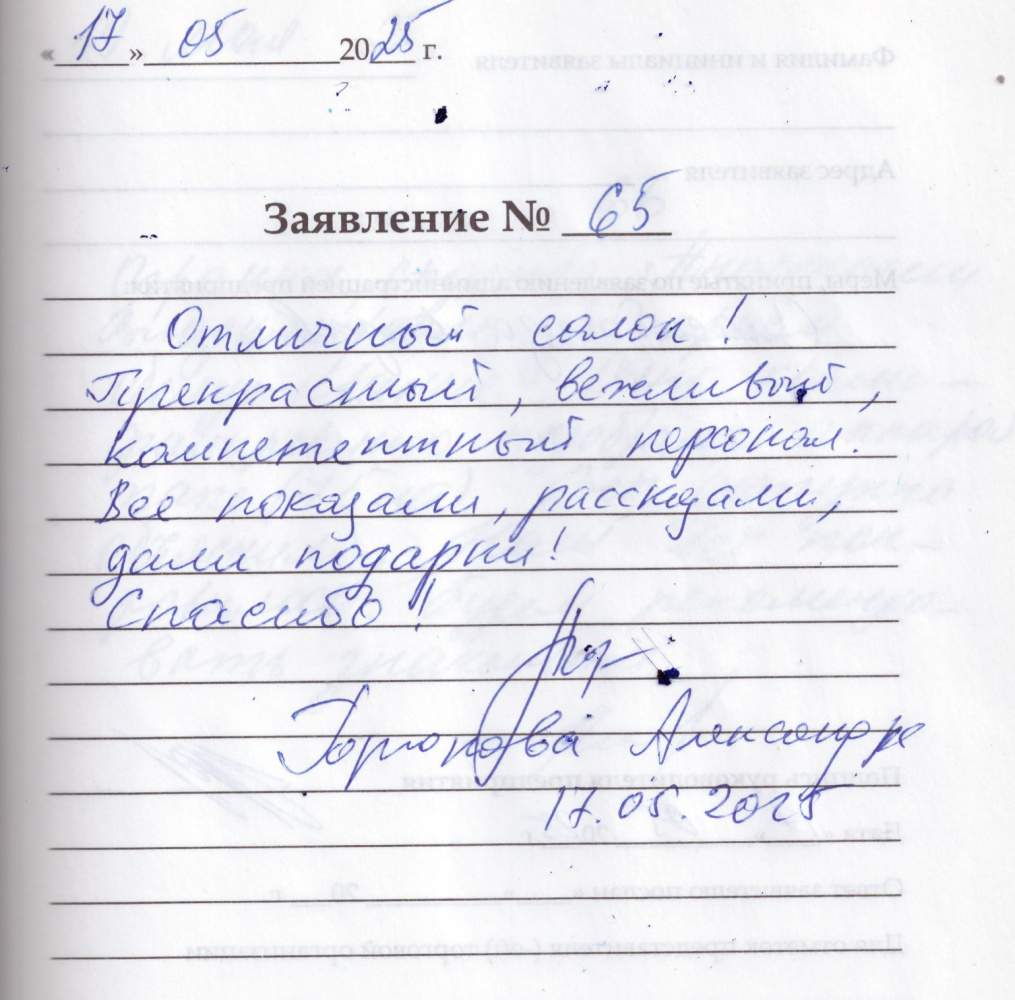 «17» 05 2025 г.
Заявление № 65
Отличный салон!
Прекрасный, вежливый,
компетентный персонал.
Все показали, рассказали,
дали подарки!
Спасибо!
Александра
17.05.2025